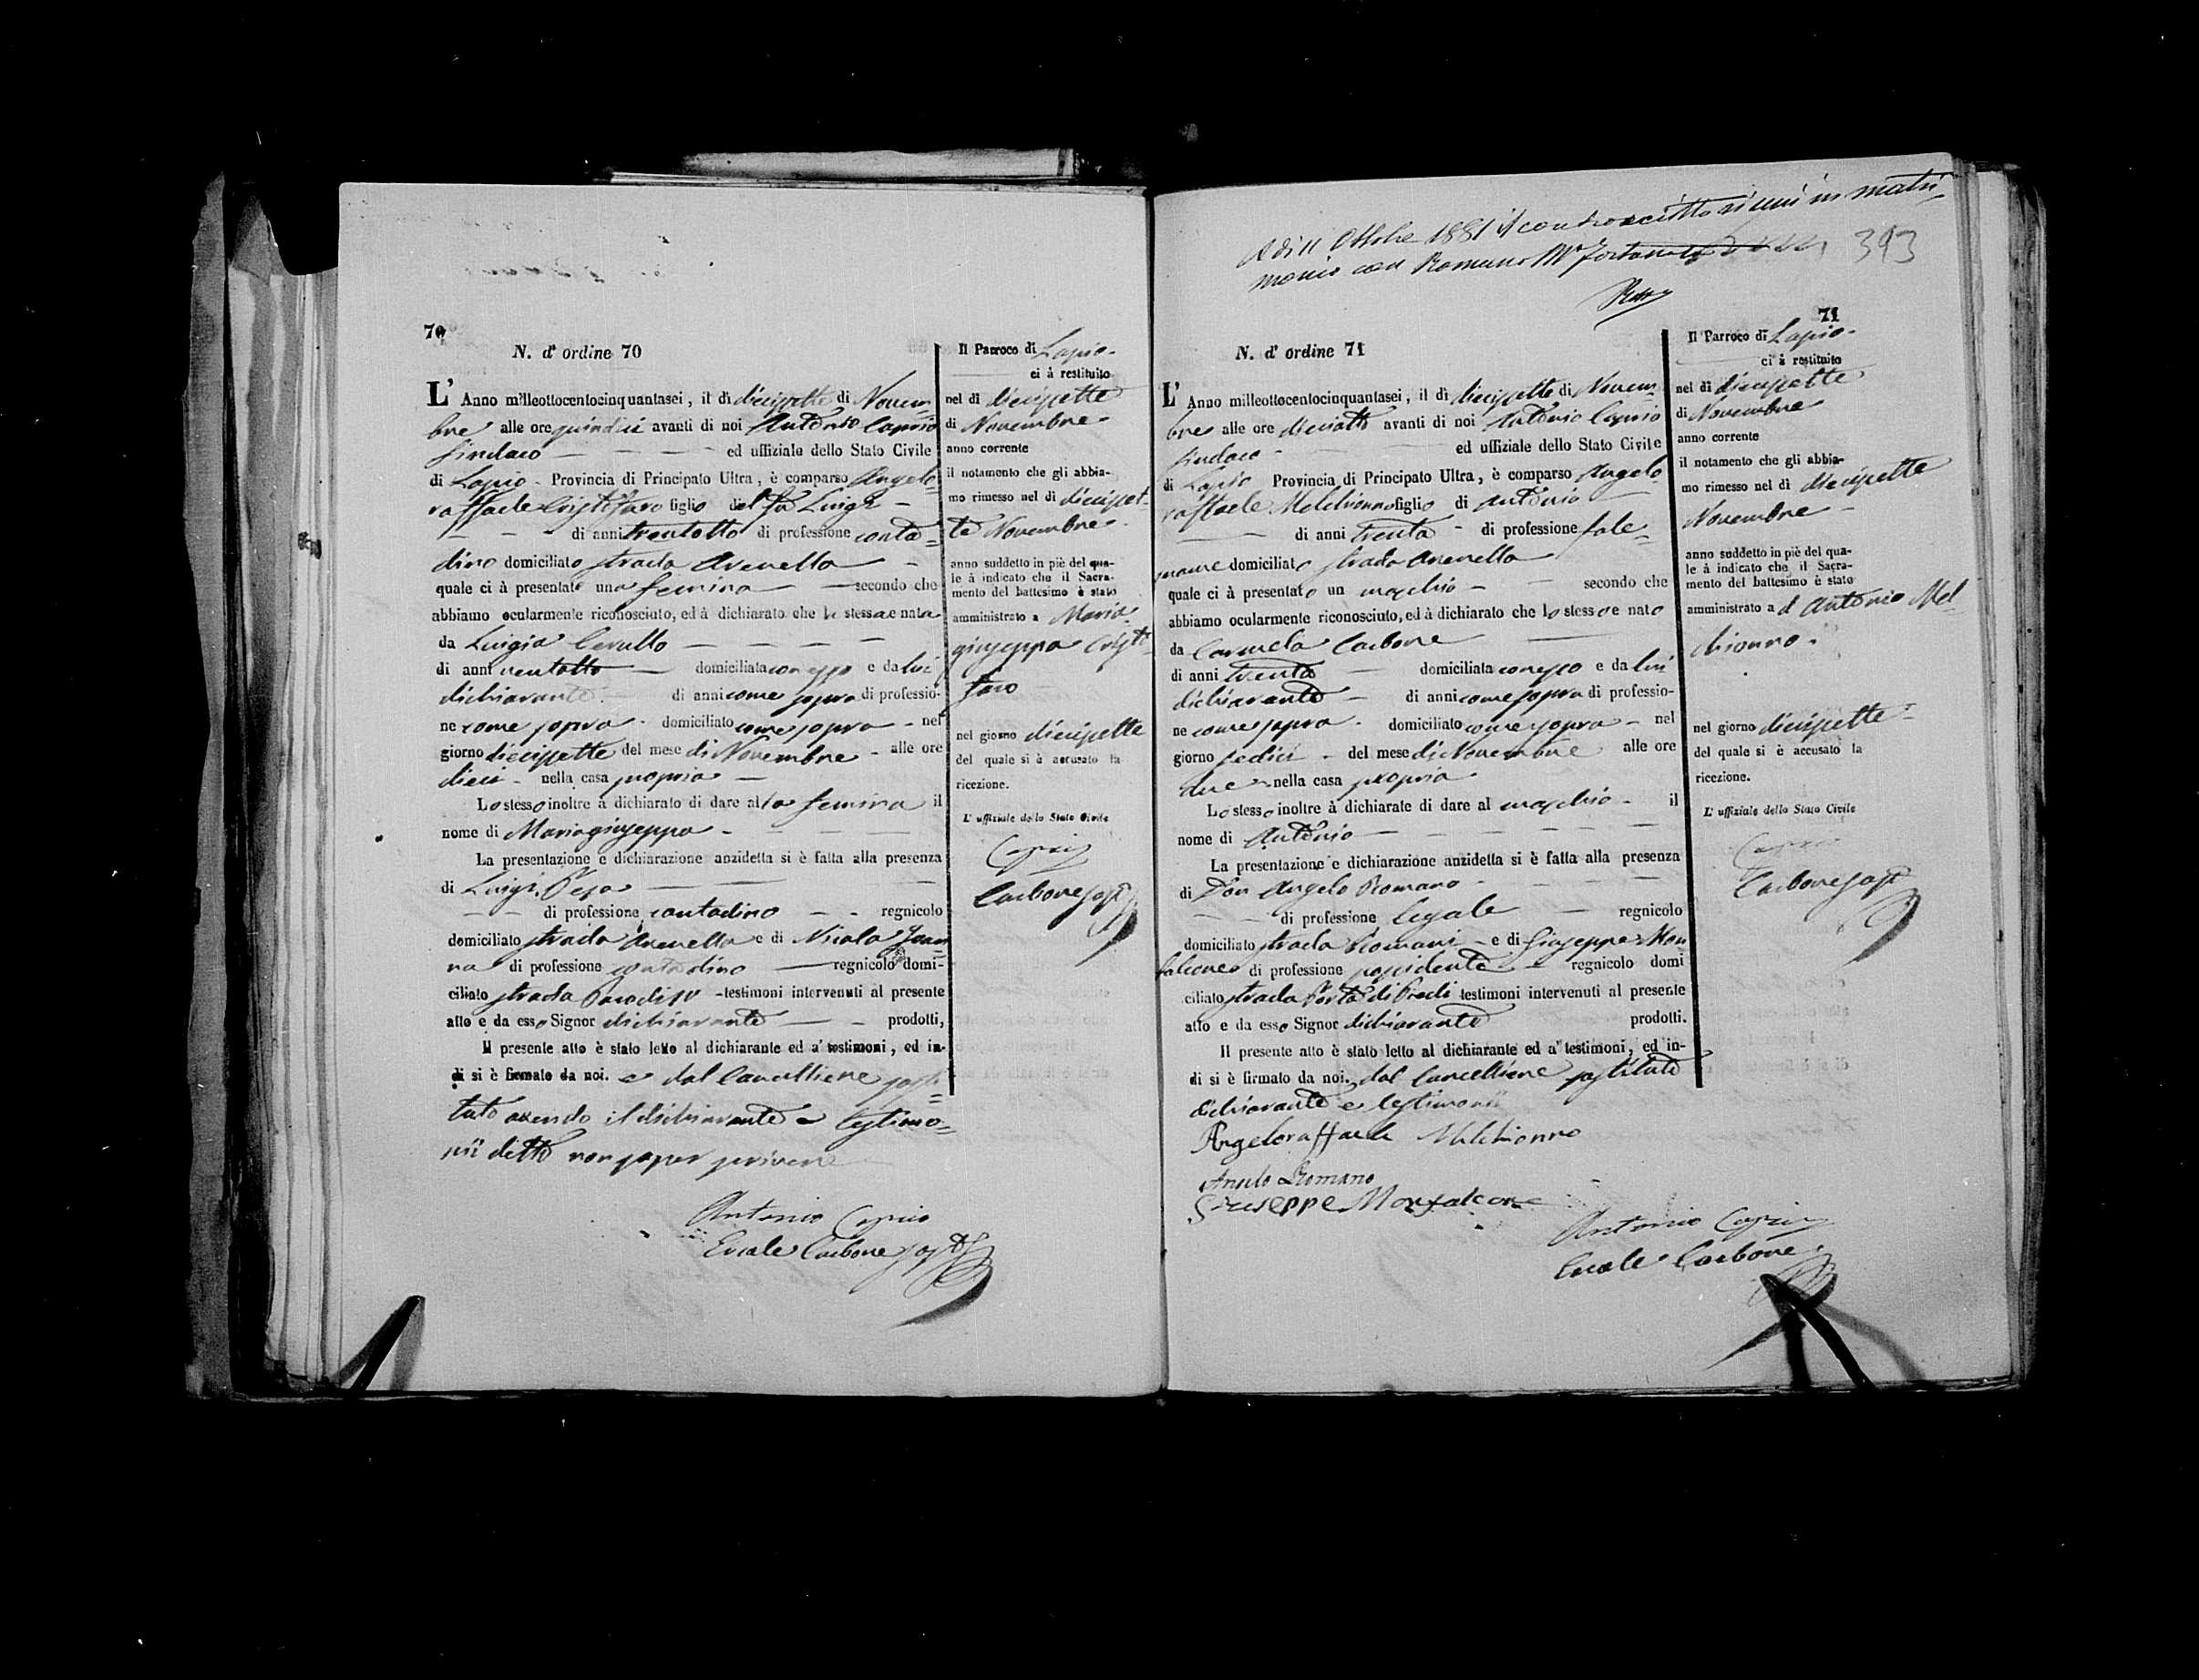 70
N. d'ordine 70
L'Anno milleottocentocinquantasei, il dì diecisette di Novem-
bre alle ore quindici avanti di noi Antonio Caprio
Sindaco ed uffiziale dello Stato Civile
di Lapio Provincia di Principato Ultra, è comparso Angelo-
raffaele Cristofaro figlio del fu Luigi
di anni trentotto di professione conta=
dino domiciliato strada Arenella
quale ci à presentato una femina secondo che
abbiamo ocularmente riconosciuto, ed à dichiarato che la stessa è nata
da Luigia Cerullo
di anni domiciliata con esso e da lui
dichiarante di anni come sopra di professio-
ne come sopra domiciliato come sopra nel
giorno diecissette del mese di Novembre alle ore
dieci nella casa propria
Lo stesso inoltre à dichiarato di dare alla femina il
nome di Mariagiuseppa
La presentazione e dichiarazione anzidetta si è fatta alla presenza
di Luigi
di professione contadino regnicolo
domiciliato strada Arenella e di Nicola Joan
na di professione contadino regnicolo domi-
ciliato strada Paradiso testimoni intervenuti al presente
atto e da esso Signor dichiarante prodotti,
Il presente atto è stato letto al dichiarante ed a' testimoni, ed in-
di si è firmato da noi. e dal Cancelliere sosti=
tuto avendo il dichiarante e testimo=
nii detto non saper scrivere
Antonio Caprio
Carbone sost
Il Parroco di Lapio
ci à restituito
nel dì diecisette
di Novembre
anno corrente
il notamento che gli abbia-
mo rimesso nel dì dieciset-
te Novembre
anno suddetto in piè del qua-
le à indicato che il Sacra-
mento del battesimo è stato
amministrato a Maria
giuseppa Cristo
faro
nel giorno diecisette
del quale si è accusato la
ricezione.
L'uffiziale dello Stato Civile
Caprio
Carbone sost
A dì 11 Ottobre 1881 il controscritto si unì in matri-
monio con Romano Mª Fortunata
393
71
N. d'ordine 71
L'Anno milleottocentocinquantasei, il dì diecisette di Novem-
bre alle ore dieciotto avanti di noi Antonio Caprio
Sindaco ed uffiziale dello Stato Civile
di Lapio Provincia di Principato Ultra, è comparso Angelo
raffaele Melchionno figlio di Antonio
di anni trenta di professione fale-
gname domiciliato strada Arenella
quale ci à presentato un maschio secondo che
abbiamo ocularmente riconosciuto, ed à dichiarato che lo stesso è nato
da Carmela Carbone
di anni trenta domiciliata con esso e da lui
dichiarante di anni come sopra di professio-
ne come sopra domiciliato come sopra nel
giorno sedici del mese di Novembre alle ore
due nella casa propria
Lo stesso inoltre à dichiarato di dare al maschio il
nome di Antonio
La presentazione e dichiarazione anzidetta si è fatta alla presenza
di Don Angelo Romano
di professione legale regnicolo
domiciliato strada Romani e di Giuseppe Mon
falcone di professione possidente regnicolo domi
ciliato strada Porta di testimoni intervenuti al presente
atto e da esso Signor dichiarante prodotti.
Il presente atto è stato letto al dichiarante ed a' testimoni, ed in-
di si è firmato da noi, dal Cancelliere sostituto
dichiarante e testimonii
Angeloraffaele Melchionno
Angelo Romano
Giuseppe Monfalcone
Antonio Caprio
Carbone
Il Parroco di Lapio
ci à restituito
nel dì diecisette
di Novembre
anno corrente
il notamento che gli abbia-
mo rimesso nel dì diecisette
Novembre
anno suddetto in piè del qua-
le à indicato che il Sacra-
mento del battesimo è stato
amministrato a d Antonio Mel
chionno
nel giorno diecisette
del quale si è accusato la
ricezione.
L'uffiziale dello Stato Civile
Caprio
Carbone sost